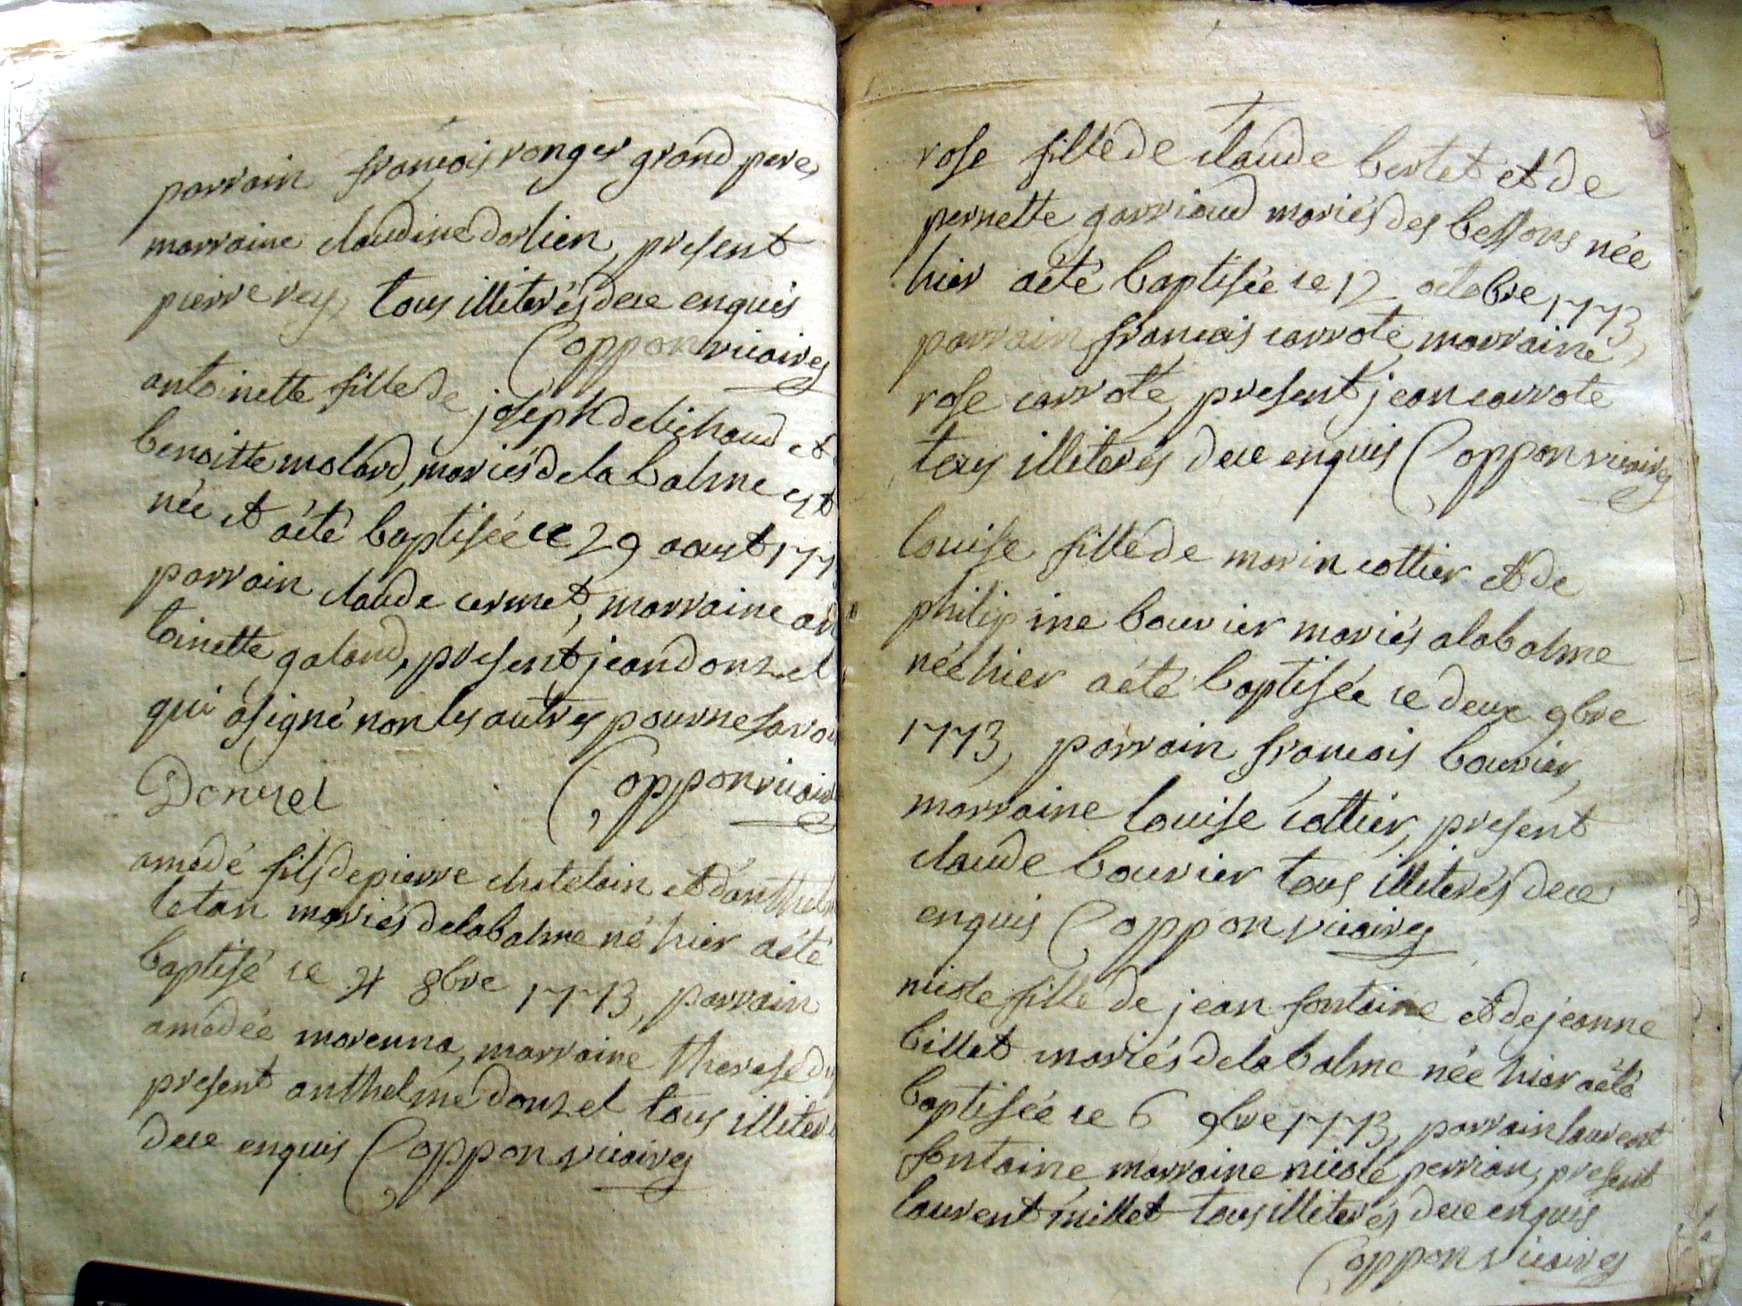 parrain françois ronger grand pere,
marraine claudine dorlien, present
pierre rey, tous illiterés de ce enquis
Coppon vicaire
antoinette fille de joseph delichaud et
benoitte molard, mariés de la balme est
née et a été baptisée ce 29 aoust 177
parrain claude cermet, marraine an
toinette galand, present jean donzel
qui a signé non les autres pour ne savoi
Donzel Coppon vicaire
amedé fils de pierre chatelain et d'anthel
letan mariés de la balme né hier a été
baptisé ce 4 8bre 1773, parrain
amedée marenna, marraine therese du
present anthelme donzel tous illiter
de ce enquis Coppon vicaire
rose fille de claude bertet et de
pernette garriaud mariés des bessons née
hier a été baptisée ce 12 octobre 1773
parrain françois carrote, marraine
rose carrote, present jean carrote
tous illiterés de ce enquis Coppon vicaire
louise fille de marin cottier et de
philipine bouvier mariés a la balme
née hier a été baptisée ce deux 9bre
1773, parrain francois bouvier,
marraine louise cottier, present
claude bouvier tous illiterés de ce
enquis Coppon vicaire
nicole fille de jean fontaine et de jeanne
billet mariés de la balme née hier a été
baptisée ce 6 9bre 1773, parrain laurent
fontaine, marraine nicole perrian, present
laurent millet tous illiterés de ce enquis
Coppon vicaire